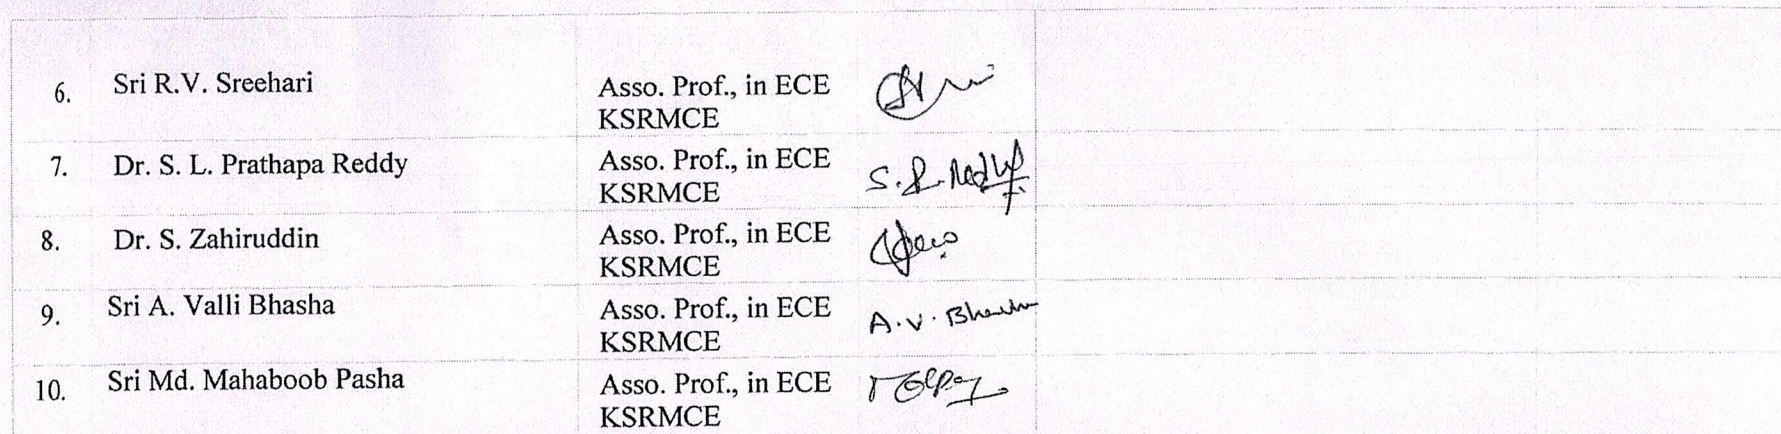 6. Sri R.V. Sreehari Asso. Prof., in ECE
KSRMCE
7. Dr. S. L. Prathapa Reddy Asso. Prof., in ECE S.P. Reddy
KSRMCE
8. Dr. S. Zahiruddin Asso. Prof., in ECE
KSRMCE
9. Sri A. Valli Bhasha Asso. Prof., in ECE A.V. Bhasha
KSRMCE
10. Sri Md. Mahaboob Pasha Asso. Prof., in ECE
KSRMCE